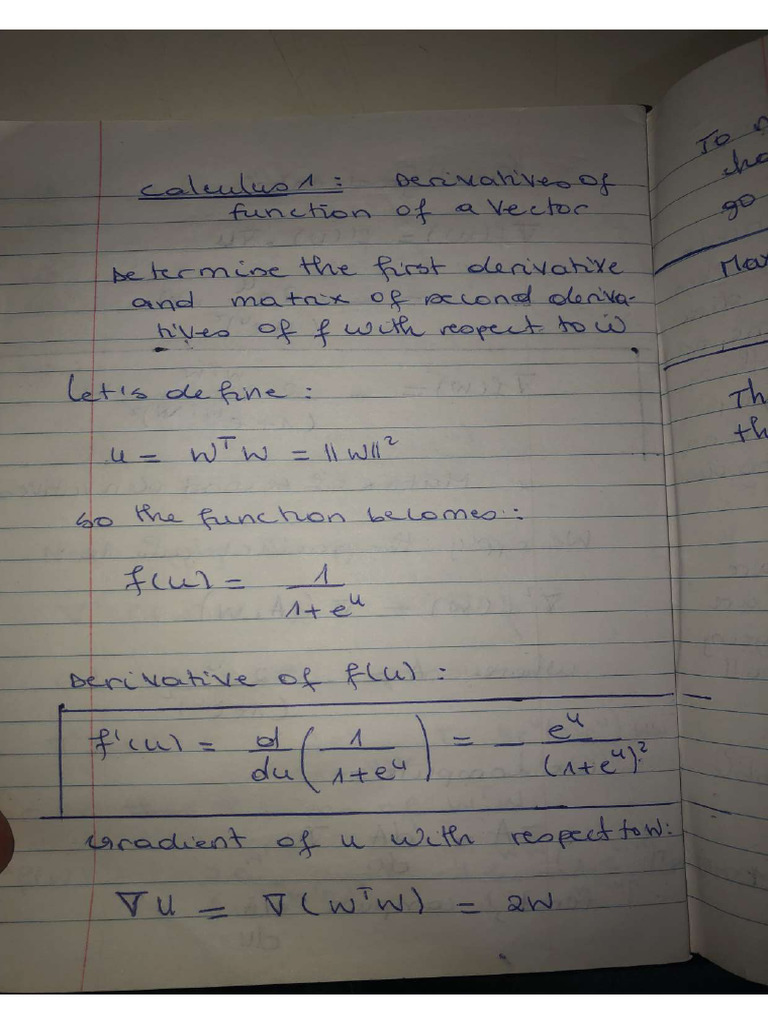 Calculus 1: Derivatives of
function of a vector
Determine the first derivative
and matrix of second deriva-
tives of f with respect to w
Let's define:
u = wᵀw = ||w||²
So the function becomes:
f(u) = 1 / (1 + eᵘ)
Derivative of f(u):
f'(u) = d/du (1 / (1 + eᵘ)) = - eᵘ / (1 + eᵘ)²
Gradient of u with respect to w:
∇u = ∇(wᵀw) = 2w
To
go
Th
th